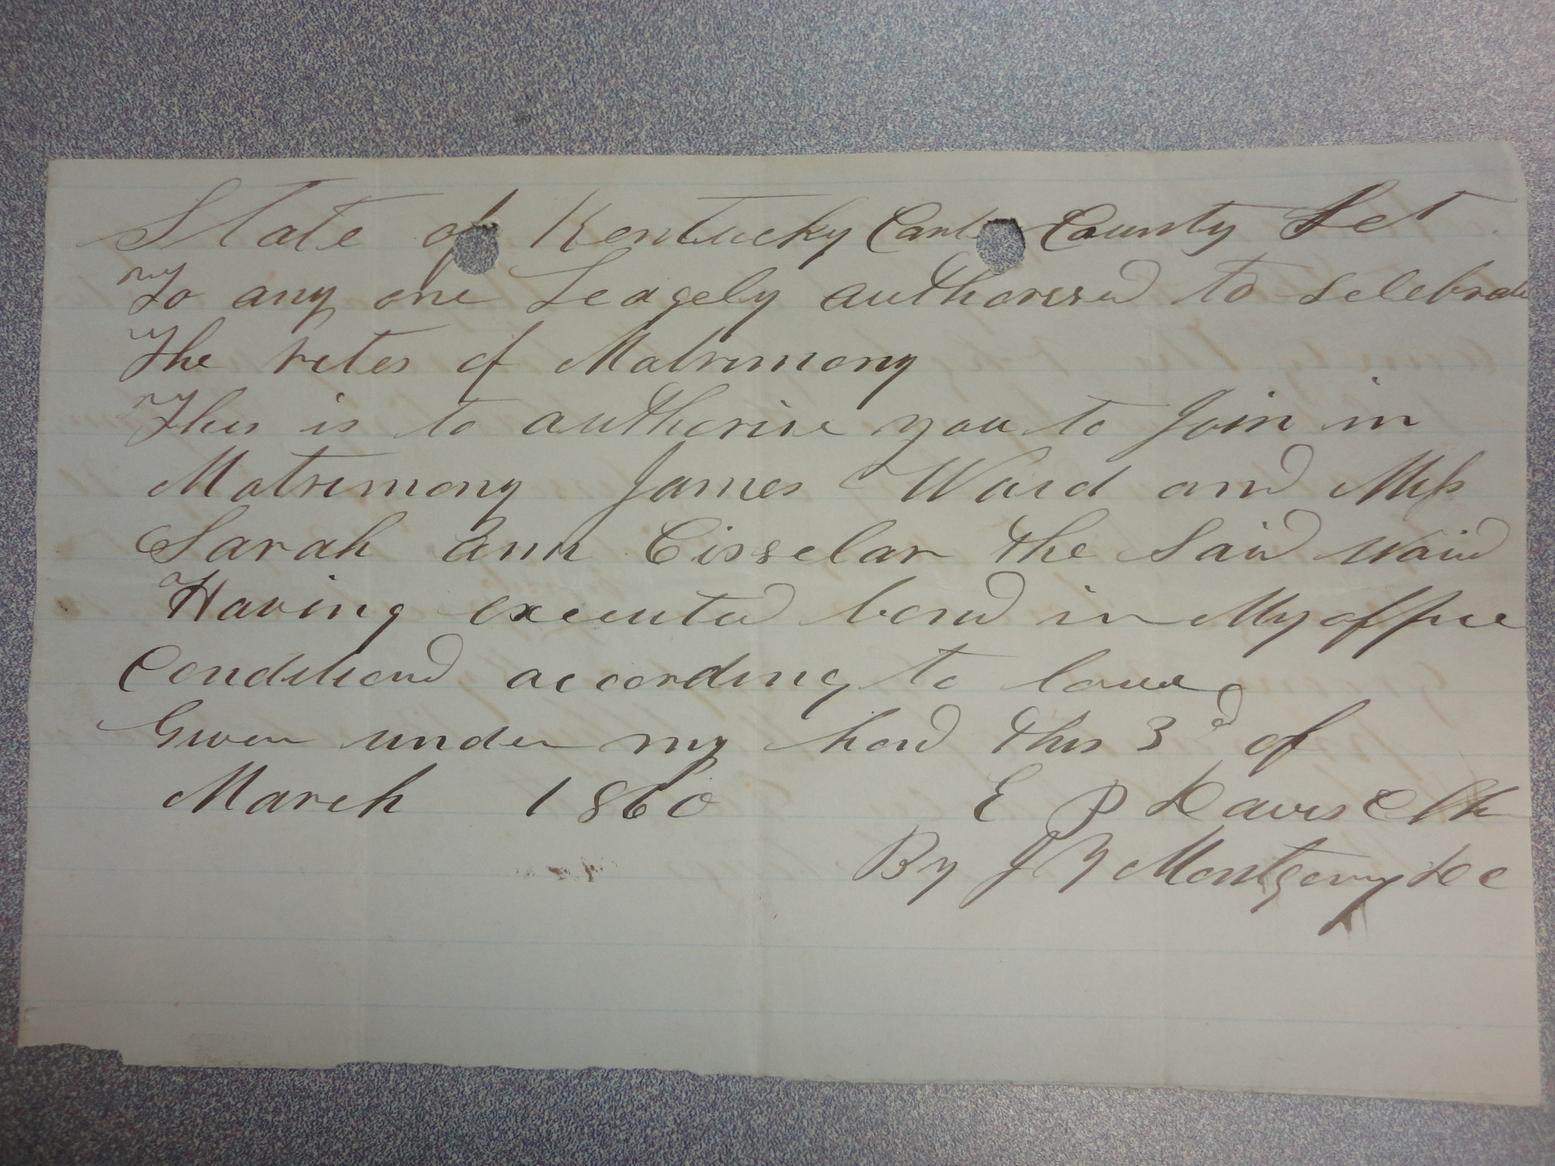 State of Kentucky Carter County Sct
To any one Leagely authorised to selebrate
The rites of Matrimony
This is to authorise you to Join in
Matrimony James Ward and Miss
Sarah Ann Cisselar the Said Ward
Having executed bond in My office
Conditiond according to law
Given under my hand this 3d of
March 1860 E P Davis Clk
By J Montgomery De C